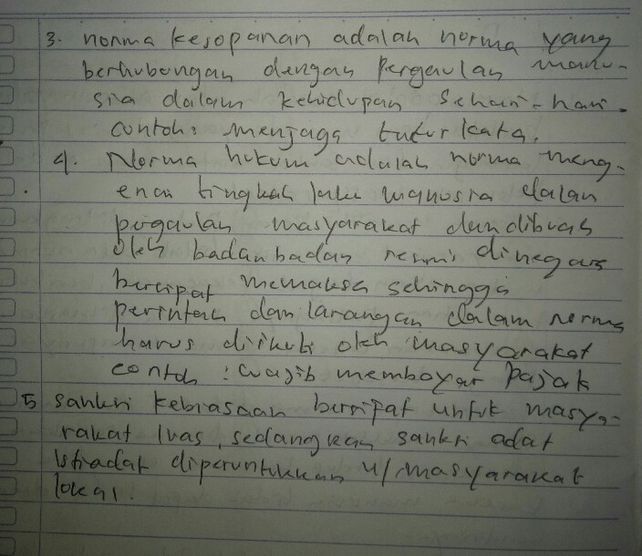 3. norma kesopanan adalah norma yang
berhubungan dengan pergaulan manu-
sia dalam kehidupan sehari-hari.
contoh: menjaga tutur kata.
4. Norma hukum adalah norma meng-
enai tingkah laku manusia dalan
pergaulan masyarakat dan dibuat
oleh badan badan resmi di negara
bersipat memaksa sehingga
perintah dan larangan dalam norma
harus diikuti oleh masyarakat
contoh : wajib membayar pajak
5 sanksi kebiasaan bersipat untuk masya-
rakat luas, sedangkan sanksi adat
istiadat diperuntukkan u/ masyarakat
lokal.